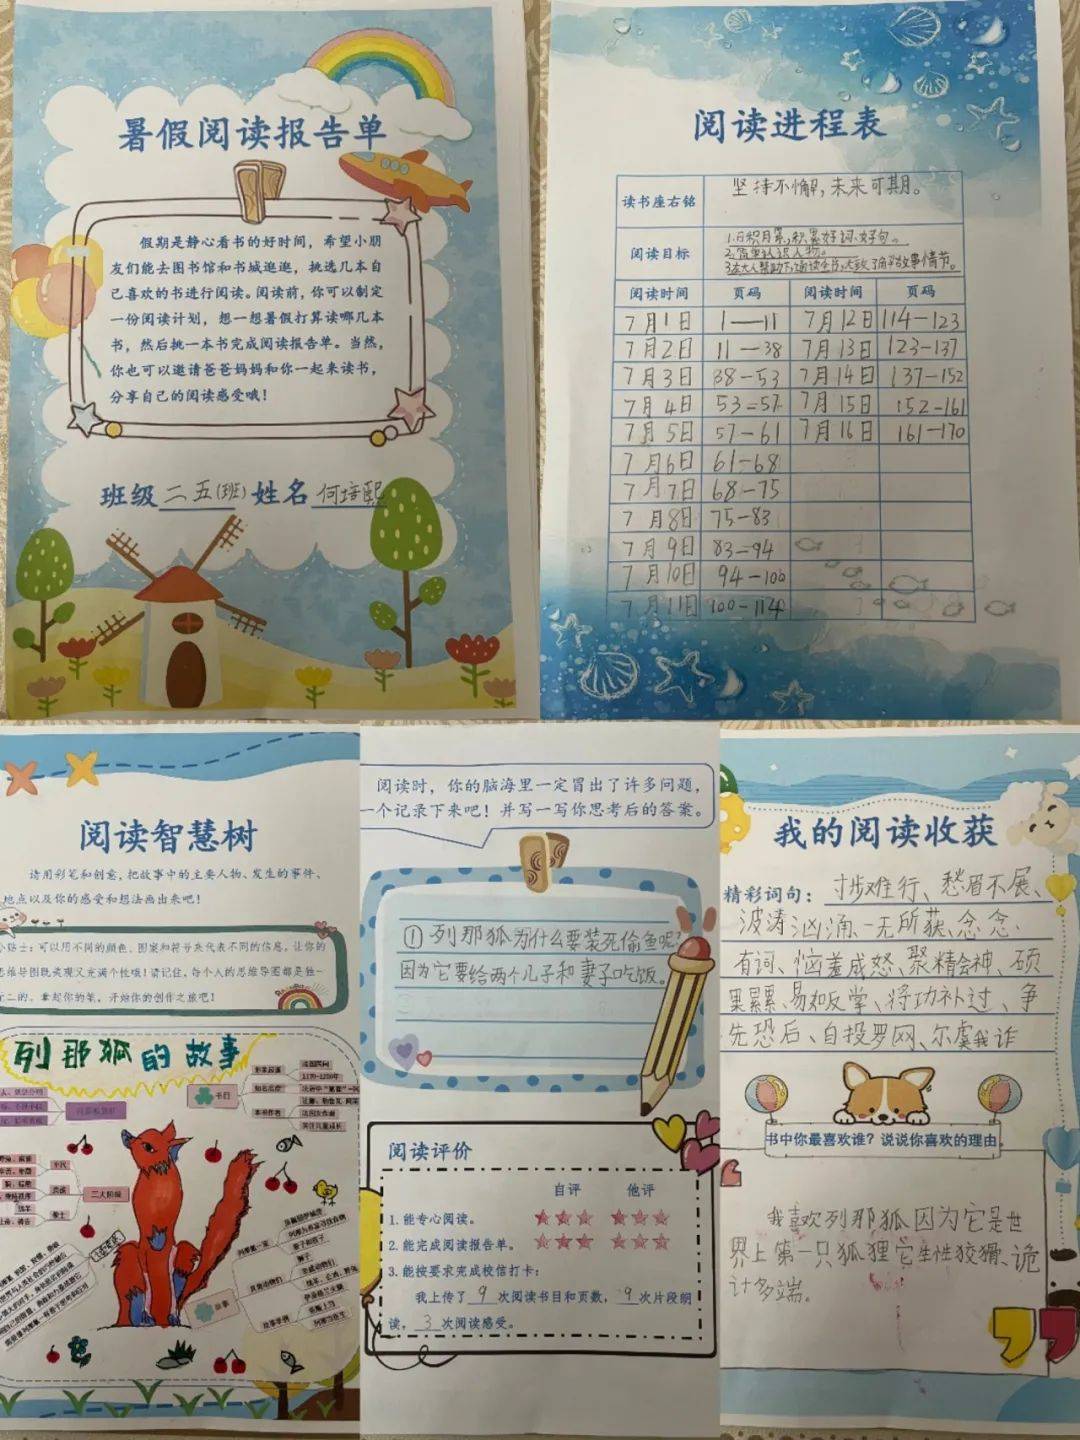 暑假阅读报告单
假期是静心看书的好时间，希望小朋
友们能去图书馆和书城逛逛，挑选几本自
己喜欢的书进行阅读。阅读前，你可以制定
一份阅读计划，想一想暑假打算读哪几本
书，然后挑一本书完成阅读报告单。当然，
你也可以邀请爸爸妈妈和你一起来读书，
分享自己的阅读感受哦！
班级 二五(班) 姓名 何培熙
阅读进程表
读书座右铭 坚持不懈，未来可期。
阅读目标 1.日积月累，积累好词、好句。
2.简单认识人物。
3.在大人帮助下，通读全书，大致了解故事情节。
阅读时间 页码 阅读时间 页码
7月1日 1—11 7月12日 114-123
7月2日 11-38 7月13日 123-137
7月3日 38-53 7月14日 137-152
7月4日 53=57 7月15日 152-161
7月5日 57-61 7月16日 161-170
7月6日 61-68
7月7日 68-75
7月8日 75-83
7月9日 83-94
7月10日 94-100
7月11日 100-114
阅读智慧树
请用彩笔和创意，把故事中的主要人物、发生的事件、
地点以及你的感受和想法画出来吧！
小贴士：可以用不同的颜色、图案和符号来代表不同的信息，让你的
思维导图既美观又充满个性哦！请记住，每个人的思维导图都是独一
无二的。拿起你的笔，开始你的创作之旅吧！
列那狐的故事
书目
故事
阅读时，你的脑海里一定冒出了许多问题，
一个记录下来吧！并写一写你思考后的答案。
①列那狐为什么要装死偷鱼呢？
因为它要给两个儿子和妻子吃饭。
阅读评价
自评 他评
1.能专心阅读。
2.能完成阅读报告单。
3.能按要求完成校信打卡：
我上传了 9 次阅读书目和页数， 9 次片段朗
读， 3 次阅读感受。
我的阅读收获
精彩词句： 寸步难行、愁眉不展、
波涛汹涌、一无所获、念念
有词、恼羞成怒、聚精会神、硕
果累累、易如反掌、将功补过、争
先恐后、自投罗网、尔虞我诈
书中你最喜欢谁？说说你喜欢的理由。
我喜欢列那狐因为它是世
界上第一只狐狸它生性狡猾、诡
计多端。